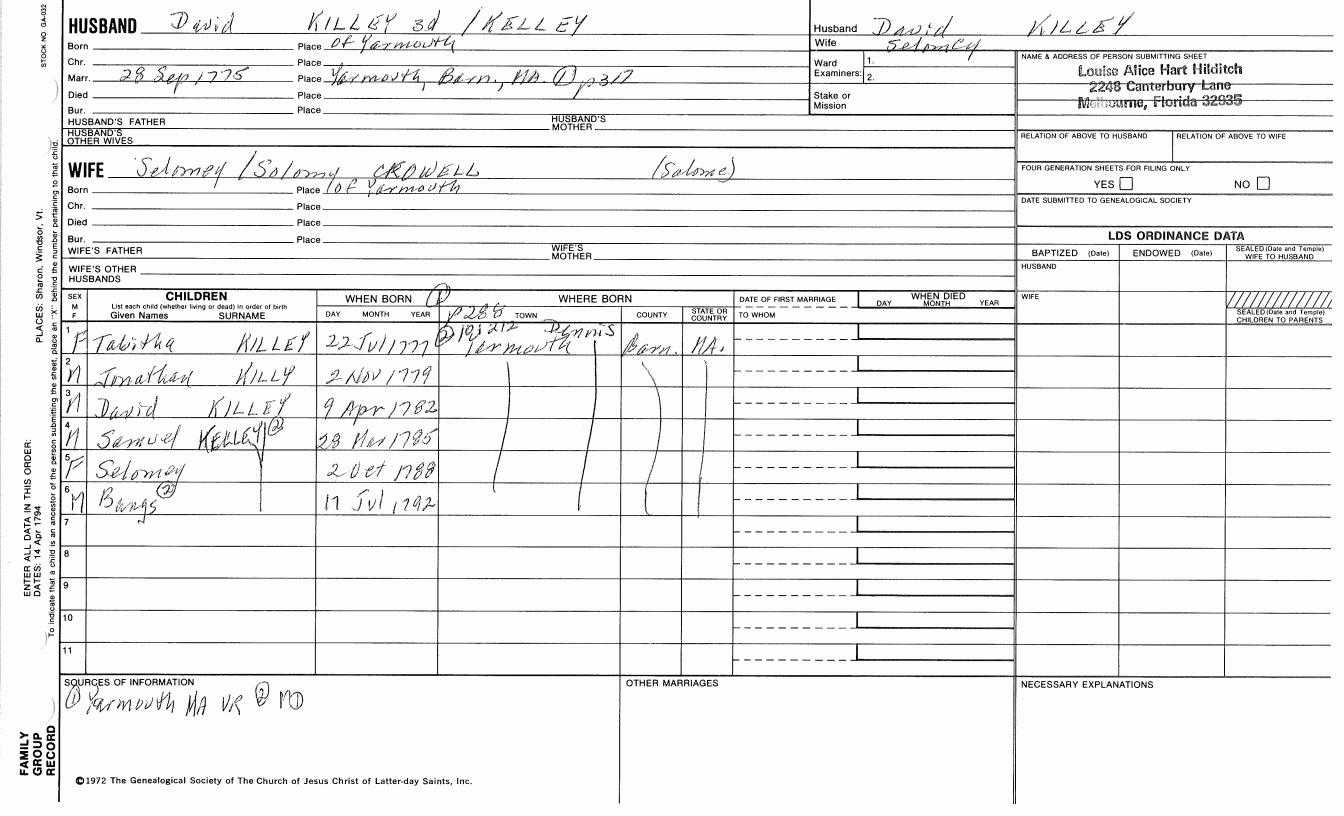 STOCK NO. GA-032
HUSBAND David KILLEY 3d / KELLEY
Born Place of Yarmouth
Chr. Place
Marr. 28 Sep 1775 Place Yarmouth, Barn., MA. ① p317
Died Place
Bur. Place
HUSBAND'S FATHER HUSBAND'S MOTHER
HUSBAND'S OTHER WIVES
Husband David KILLEY
Wife Selomey
Ward Examiners: 1. 2.
Stake or Mission
NAME & ADDRESS OF PERSON SUBMITTING SHEET
Louise Alice Hart Hilditch
2248 Canterbury Lane
Melbourne, Florida 32935
RELATION OF ABOVE TO HUSBAND RELATION OF ABOVE TO WIFE
FOUR GENERATION SHEETS FOR FILING ONLY
YES NO
DATE SUBMITTED TO GENEALOGICAL SOCIETY
WIFE Selomey / Solomy CROWELL (Salome)
Born Place of Yarmouth
Chr. Place
Died Place
Bur. Place
WIFE'S FATHER WIFE'S MOTHER
WIFE'S OTHER HUSBANDS
LDS ORDINANCE DATA
BAPTIZED (Date) ENDOWED (Date) SEALED (Date and Temple) WIFE TO HUSBAND
HUSBAND
WIFE
SEALED (Date and Temple) CHILDREN TO PARENTS
SEX M F
CHILDREN
List each child (whether living or dead) in order of birth
Given Names SURNAME
WHEN BORN ①
DAY MONTH YEAR
WHERE BORN
p288 TOWN COUNTY STATE OR COUNTRY
DATE OF FIRST MARRIAGE
TO WHOM
WHEN DIED
DAY MONTH YEAR
② 10:212 Dennis
1 F Tabitha KILLEY 22 Jul 1777 Yarmouth Barn. MA.
2 M Jonathan KILLY 2 Nov 1779
3 M David KILLEY 9 Apr 1782
4 M Samuel KELLEY ② 28 Mar 1785
5 F Selomey 2 Oct 1788
6 M Bangs ② 17 Jul 1792
7
8
9
10
11
SOURCES OF INFORMATION
① Yarmouth MA VR ② MD
OTHER MARRIAGES
NECESSARY EXPLANATIONS
©1972 The Genealogical Society of The Church of Jesus Christ of Latter-day Saints, Inc.
FAMILY GROUP RECORD
ENTER ALL DATA IN THIS ORDER:
DATES: 14 Apr 1794
PLACES: Sharon, Windsor, Vt.
To indicate that a child is an ancestor of the person submitting the sheet, place an "X" behind the number pertaining to that child.